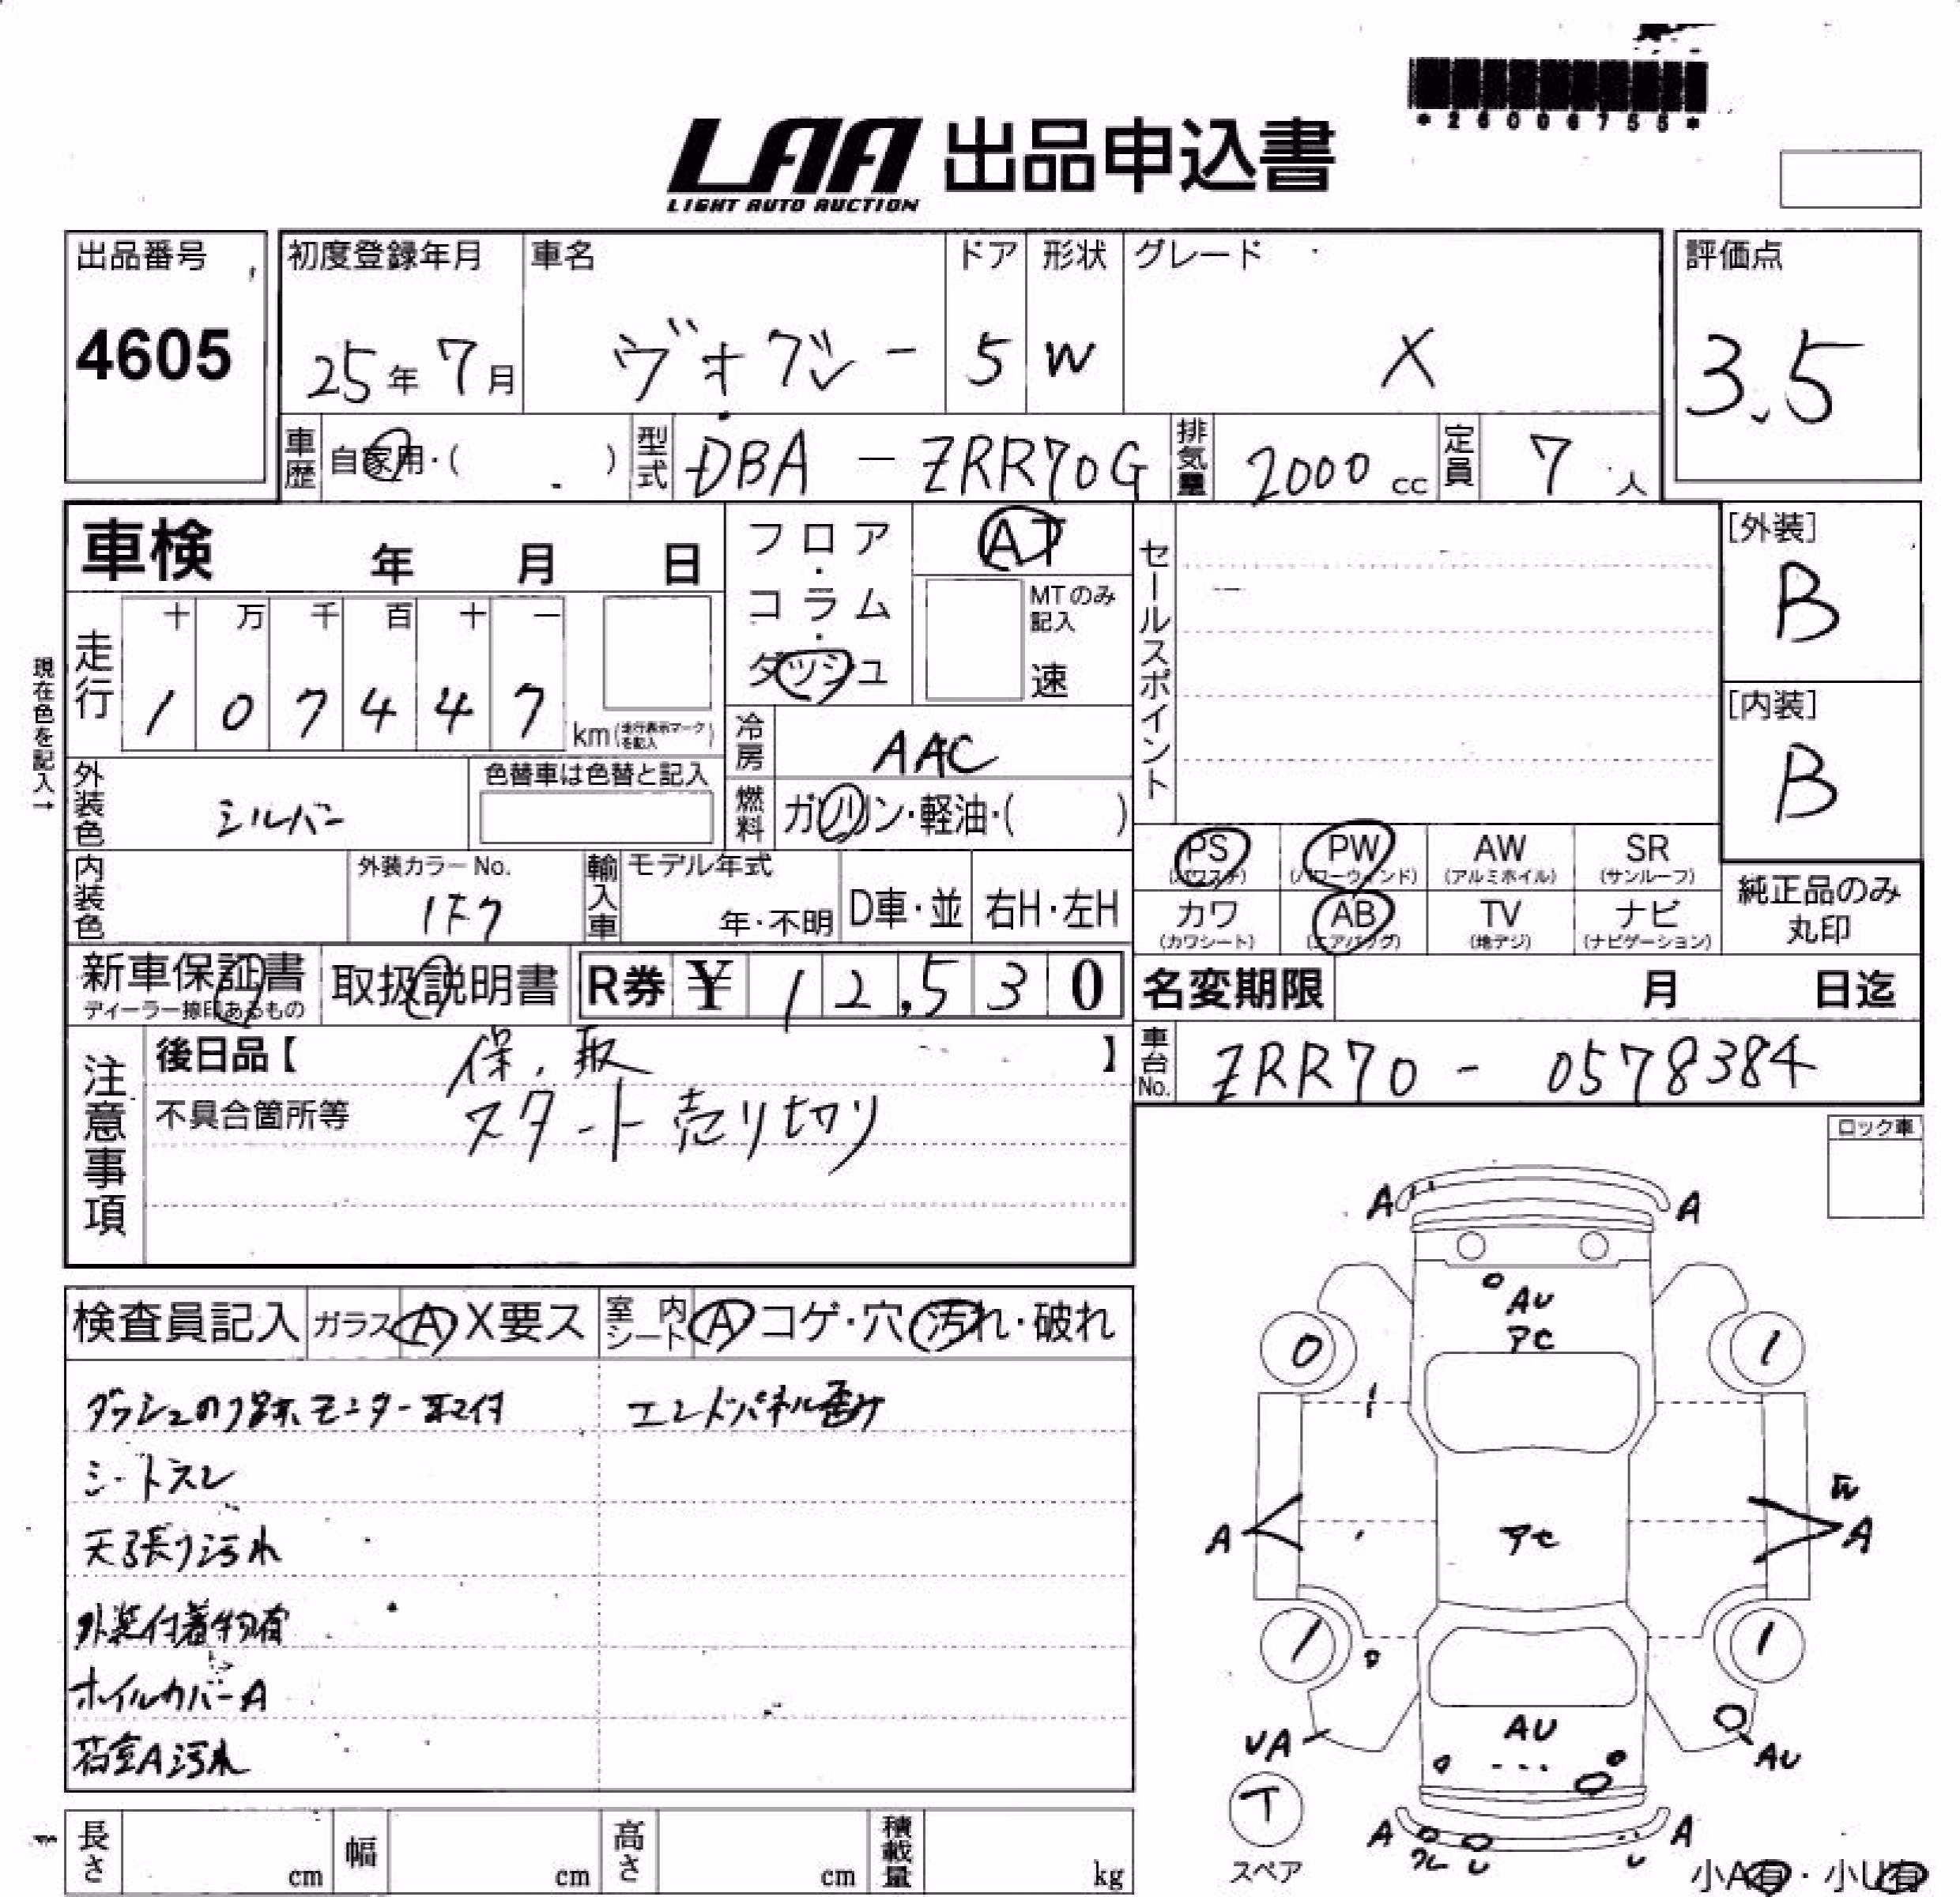 *26006755*
LAA 出品申込書
LIGHT AUTO AUCTION
出品番号 初度登録年月 車名 ドア 形状 グレード 評価点
4605 25年 7月 ヴォクシー 5 W X 3.5
車歴 自家用・( ) 型式 DBA - ZRR70G 排気量 2000 cc 定員 7 人
車検 年 月 日 フロア・コラム・ダッシュ AT セールスポイント [外装]
B
MTのみ記入 速
十 万 千 百 十 一
現在色を記入→ 走行 1 0 7 4 4 7 km(走行表示マークを記入) [内装]
冷房 AAC B
外装色 シルバー 色替車は色替と記入 燃料 ガソリン・軽油・( )
PS (パワステ) PW (パワーウィンド) AW (アルミホイル) SR (サンルーフ)
内装色 外装カラーNo. 1F7 輸入車 モデル年式 年・不明 D車・並 右H・左H
カワ (カワシート) AB (エアバッグ) TV (地デジ) ナビ (ナビゲーション) 純正品のみ丸印
新車保証書 ディーラー捺印あるもの 取扱説明書 R券 ¥ 12,530 名変期限 月 日迄
注意事項 後日品【 保.取 】 車台No. ZRR70 - 0578384
不具合箇所等 スタート売り切り
ロック車
A A
検査員記入 ガラス A X要ス 室内シート A コゲ・穴 汚れ・破れ
AU
アセ
0 1
ダッシュのり跡.モニター取付 エンドパネル歪み
シートスレ
A アセ A
天張り汚れ
外装付着物有
1 1
ホイルカバーA
荷室A汚れ
UA AU AU
T
スペア
A A
ワレ U U
長さ cm 幅 cm 高さ cm 積載量 kg
小A有・小U有